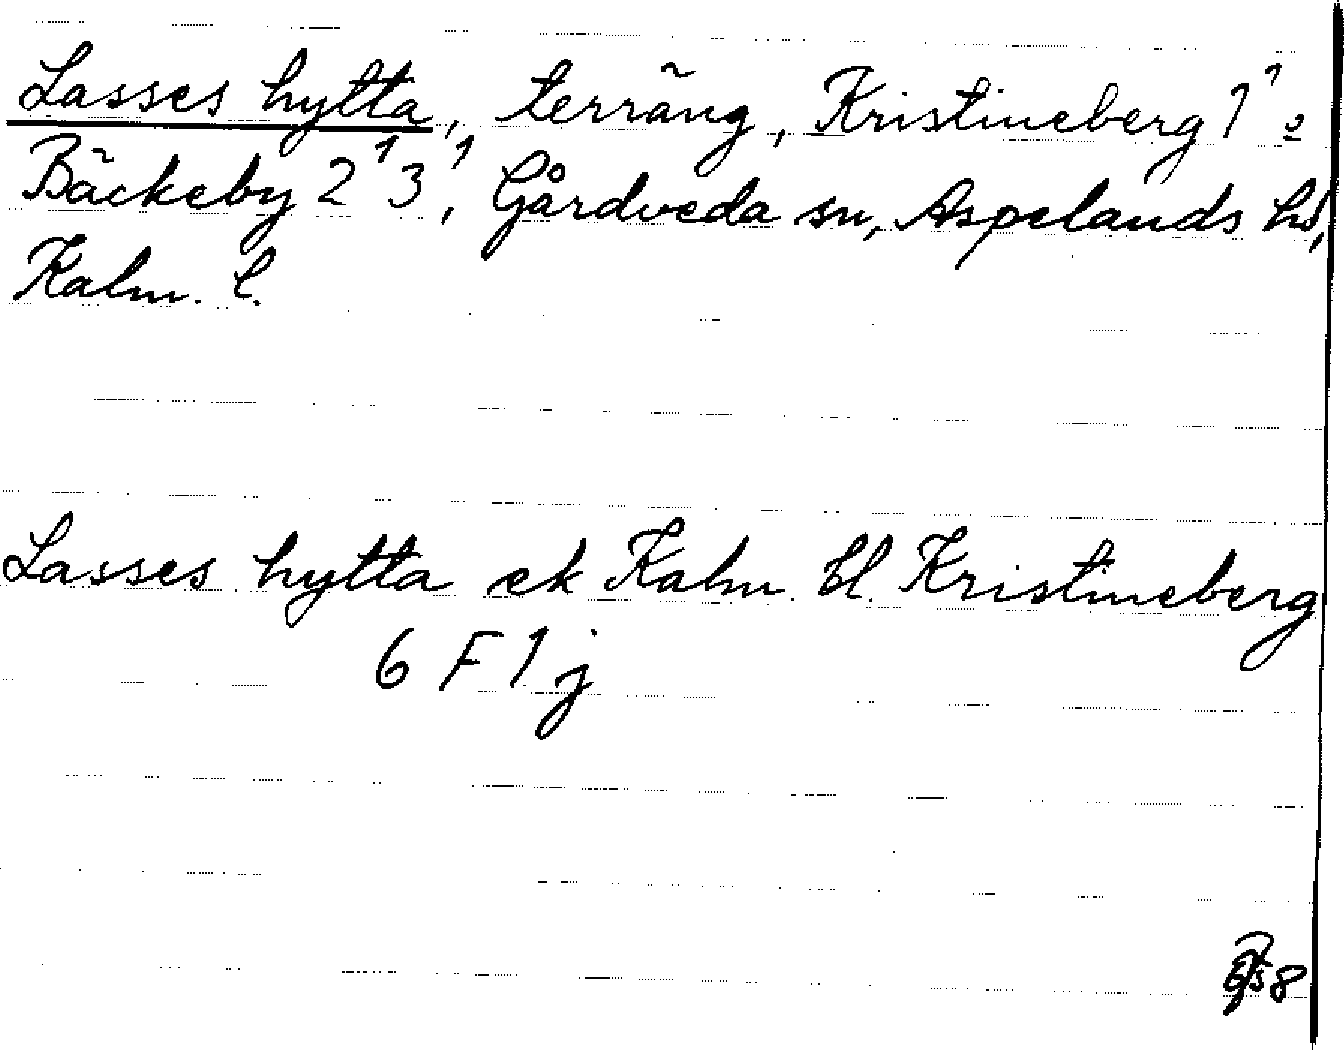 Lasses hytta, terräng, Kristineberg 1¹ o
Bäckeby 2¹ 3¹, Gårdveda sn, Aspelands hd,
Kalm. l.
Lasses hytta ek Kalm. bl. Kristineberg
6 F 1 j